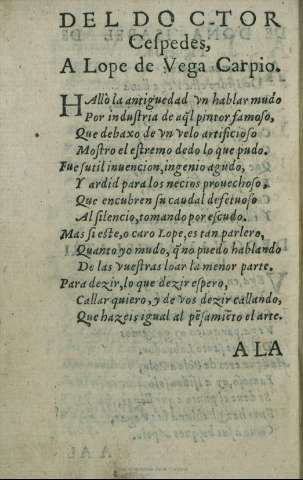 DEL DOCTOR
Cespedes,
A Lope de Vega Carpio.
HAllò la antiguedad vn hablar mudo
Por industria de aq̃l pintor famoso,
Que debaxo de vn velo artificioso
Mostro el estremo dedo lo que pudo.
Fue sutil inuencion, ingenio agudo,
Y ardid para los necios prouechoso,
Que encubren su caudal defetuoso
Al silencio, tomando por escudo.
Mas si este, o caro Lope, es tan parlero,
Quanto yo mudo, q̃ no puedo hablando
De las vuestras loar la menor parte.
Para dezir, lo que dezir espero,
Callar quiero, y de vos dezir callando,
Que hazeis igual al pẽsamiẽto el arte.
A LA